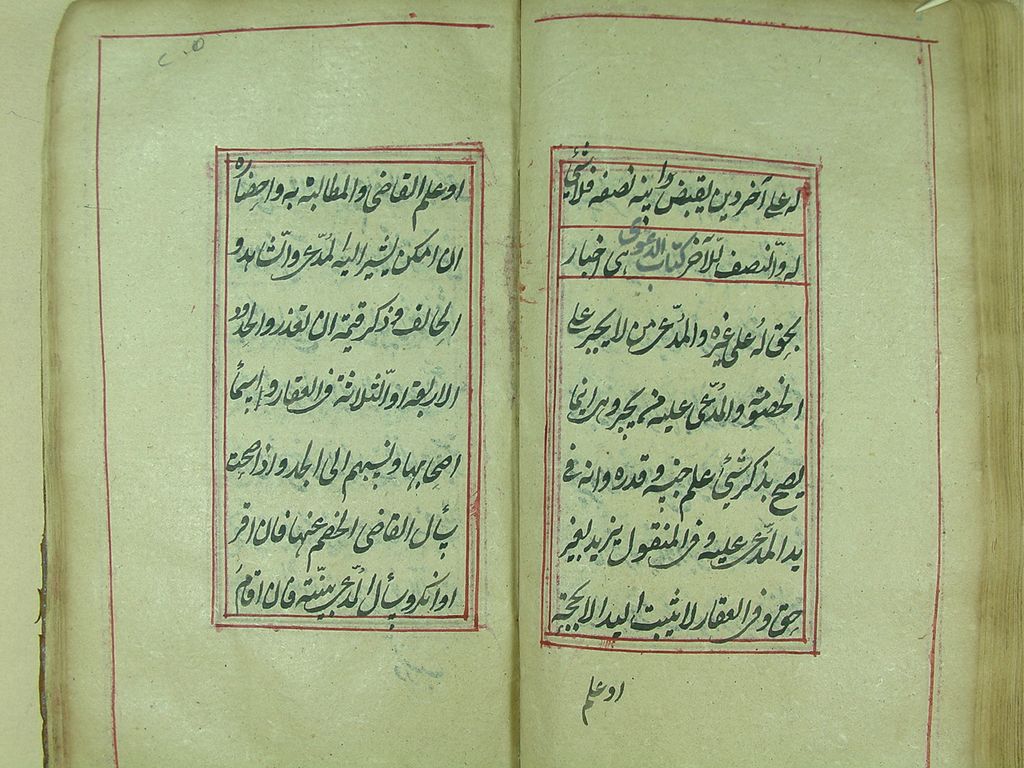 له على آخر دين يقبض وابنه نصفه فلا شئ
له والنصف للآخر كتاب الدعوى هى اخبار
بحق له على غيره والمدعى من لا يجبر على
الخصومة والمدعى عليه من يجبر وهى انما
يصح بذكر شئ علم جنسه وقدره وانه فى
يد المدعى عليه وفى المنقول يزيد بغير
حق وفى العقار لا يثبت اليد الا بحجة
او علم
او علم القاضى والمطالبة به واحضاره
ان امكن ليشير اليه المدعى والشاهد و
الحالف وذكر قيمته ان تعذر والحدود
الاربعة او الثلاثة فى العقار و اسماء
اصحابها ونسبهم الى الجد واذا صحت
يسأل القاضى الخصم عنها فان اقر
او انكر وسأل المدعى بينة فان اقام